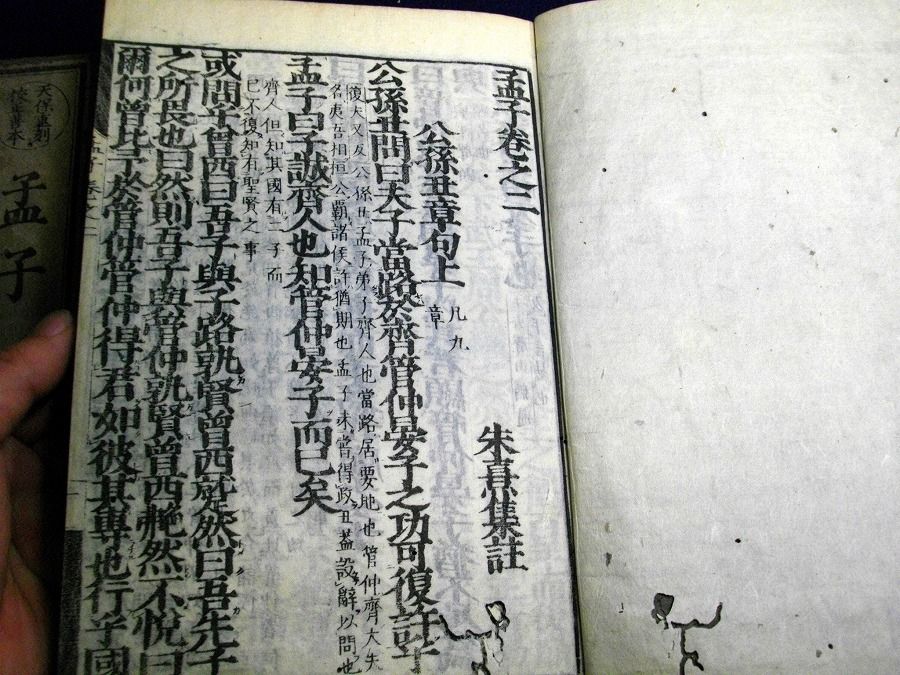 孟子卷之二
朱熹集註
公孫丑章句上
凡九
章
公孫丑問曰夫子當路於齊管仲晏子之功可復許乎
復夫又反公孫丑孟子弟子齊人也當路居要地也管仲齊大夫
名夷吾相桓公霸諸侯許猶期也孟子未嘗得政丑蓋設辭以問也
孟子曰子誠齊人也知管仲晏子而已矣
齊人但知其國有二子而
已不復知有聖賢之事
或問乎曾西曰吾子與子路孰賢曾西蹵然曰吾先子
之所畏也曰然則吾子與管仲孰賢曾西艴然不悅曰
爾何曾比予於管仲管仲得君如彼其專也行乎國
天保重刻
校正善本
孟子